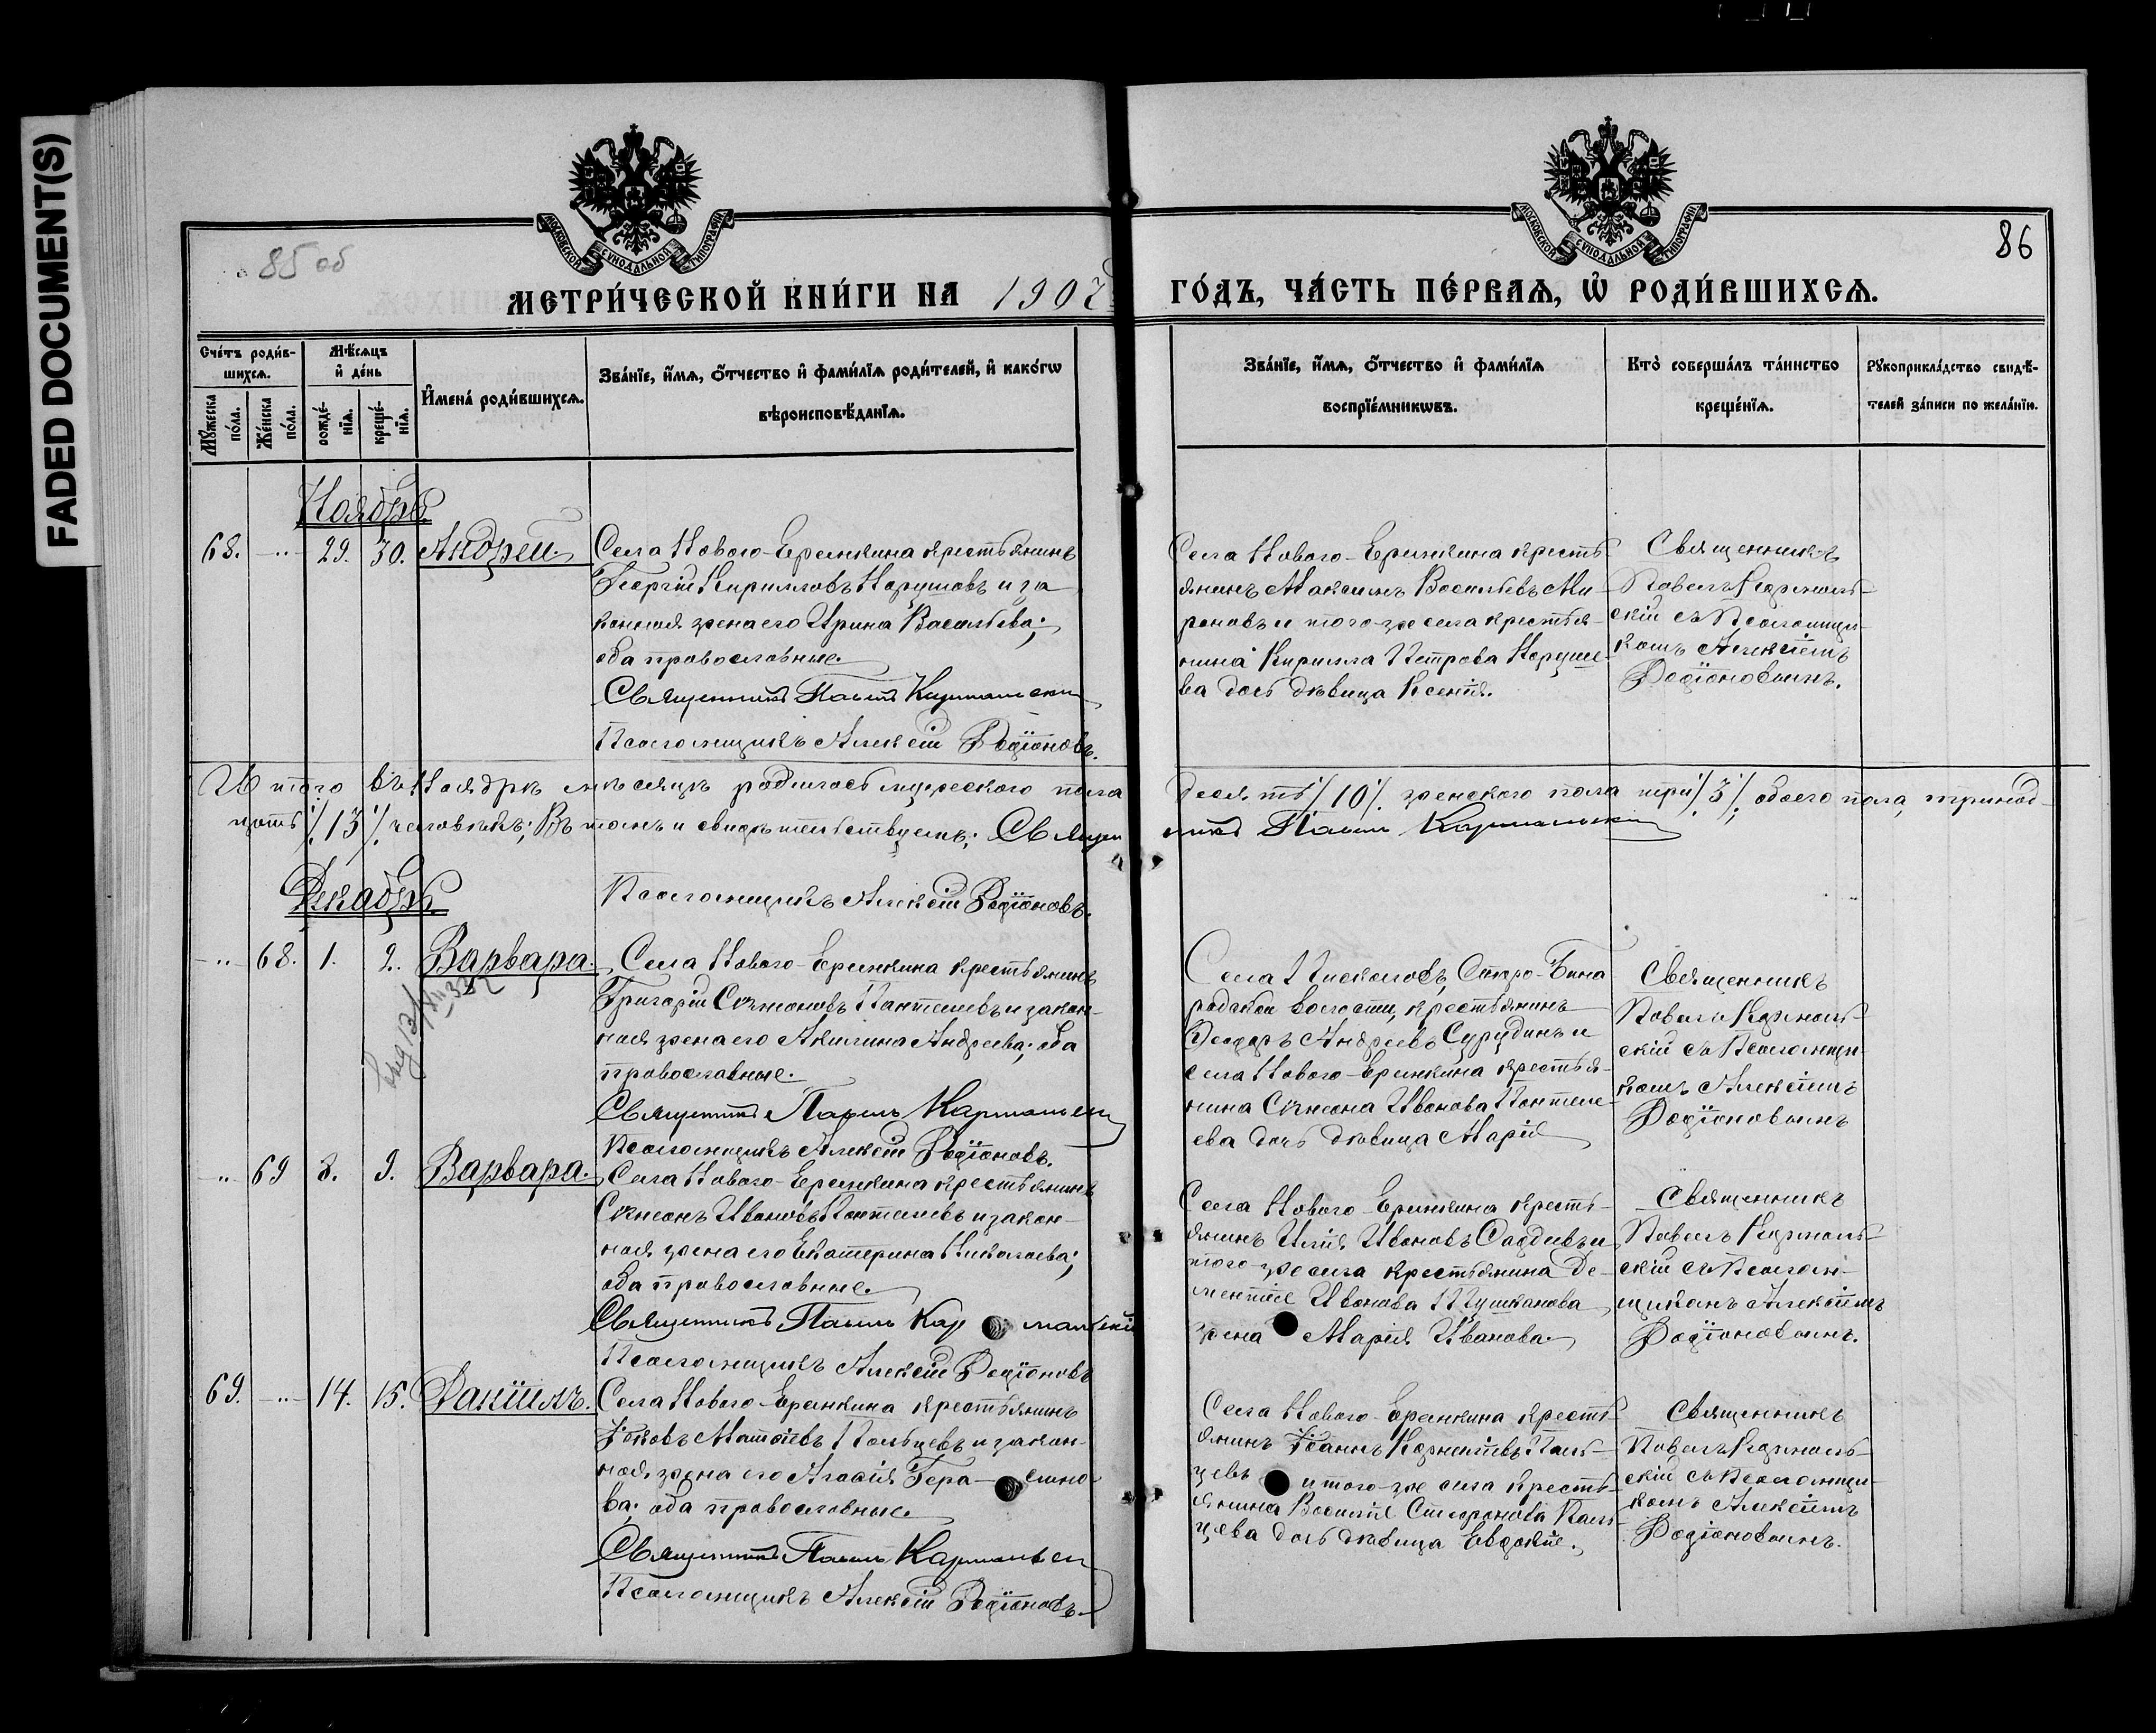 FADED DOCUMENT(S)
85 об
86
МОСКОВСКОЙ СѴНОДАЛЬНОЙ ТИПОГРАФІИ
МОСКОВСКОЙ СѴНОДАЛЬНОЙ ТИПОГРАФІИ
МЕТРИ́ЧЕСКОЙ КНИ́ГИ НА 1907
ГО́ДЪ, ЧА́СТЬ ПЕ́РВАѦ, Ѡ҆ РОДИ́ВШИХСѦ.
Сче́тъ роди́в-
шихсѧ.
Мꙋ́жеска по́ла.
Же́нска по́ла.
Мѣ́сѧцъ
и҆ де́нь
рожде́-
нїѧ.
креще́-
нїѧ.
И҆мена̀ роди́вшихсѧ.
Зва́нїе, и҆́мѧ, ѻ҆́тчество и҆ фами́лїѧ роди́телей, и҆ како́гѡ
вѣроисповѣ́данїѧ.
Зва́нїе, и҆́мѧ, ѻ҆́тчество и҆ фами́лїѧ
воспрїе́мникѡвъ.
Кто̀ соверша́лъ та́инство
креще́нїѧ.
Рꙋкоприкла́дство свидѣ́-
телей за́писи по жела́нїю.
Ноябрь
68. -"- 29. 30. Андрей.
Села Нового-Еремкина крестьянинъ
Георгій Кирилловъ Нарушовъ и за
конная жена его Ирина Васильева;
оба православные.
Священникъ Павелъ Кармальскій
Псаломщикъ Алексій Родіоновъ.
Села Нового-Еремкина кресть-
янинъ Максимъ Васильевъ Ми-
роновъ и того-же села крестья-
нина Кирилла Петрова Наруше-
ва дочь дѣвица Ксенія.
Священникъ
Павелъ Кармаль-
скій съ Псаломщи-
комъ Алексіемъ
Родіоновымъ.
Итого въ Ноябрѣ мѣсяцѣ родилось мужеского пола
десять /10/. женского пола три /3/, обоего пола, тринад-
цать /13/ человѣкъ; Въ томъ и свидѣтельствуемъ: Священ
никъ Павелъ Кармальскій
Псаломщикъ Алексій Родіоновъ.
Декабрь
-"- 68. 1. 2. Варвара.
Села Нового-Еремкина крестьянинъ
Григорій Сѵмеоновъ Пантелеевъ и закон-
ная жена его Акилина Андреева; оба
православные.
Священникъ Павелъ Кармальскій
Псаломщикъ Алексій Родіоновъ.
Села Пискаловъ, Старо-Бина
радской волости, крестьянинъ
Ѳеодоръ Андреевъ Сурудинъ и
села Нового-Еремкина крестья-
нина Сѵмеона Иванова Пантеле-
ева дочь дѣвица Марія
Священникъ
Павелъ Кармаль-
скій съ Псаломщи-
комъ Алексіемъ
Родіоновымъ
-"- 69 8. 9. Варвара.
Села Нового-Еремкина крестьянинъ
Сѵмеонъ Ивановъ Пантелеевъ и закон-
ная жена его Екатерина Николаева;
оба православные.
Священникъ Павелъ Кармальскій
Псаломщикъ Алексій Родіоновъ
Села Нового-Еремкина кресть-
янинъ Илія Ивановъ Саддеевъ и
того-же села крестьянина Де-
ментія Иванова Пушканова
жена Марія Иванова.
Священникъ
Павелъ Кармаль-
скій съ Псалом-
щикомъ Алексіемъ
Родіоновымъ.
69. -"- 14. 15. Даніилъ.
Села Нового-Еремкина крестьянинъ
Іаковъ Матѳіевъ Пальцевъ и закон-
ная жена его Агафія Гера-симо-
ва; оба православные.
Священникъ Павелъ Кармальскій
Псаломщикъ Алексій Родіоновъ.
Села Нового-Еремкина кресть-
янинъ Іоаннъ Корниліевъ Паль-
цевъ и того-же села кресть-
янина Василія Стефанова Паль-
цева дочь дѣвица Евдокія.
Священникъ
Павелъ Кармаль-
скій съ Псаломщи-
комъ Алексіемъ
Родіоновымъ.